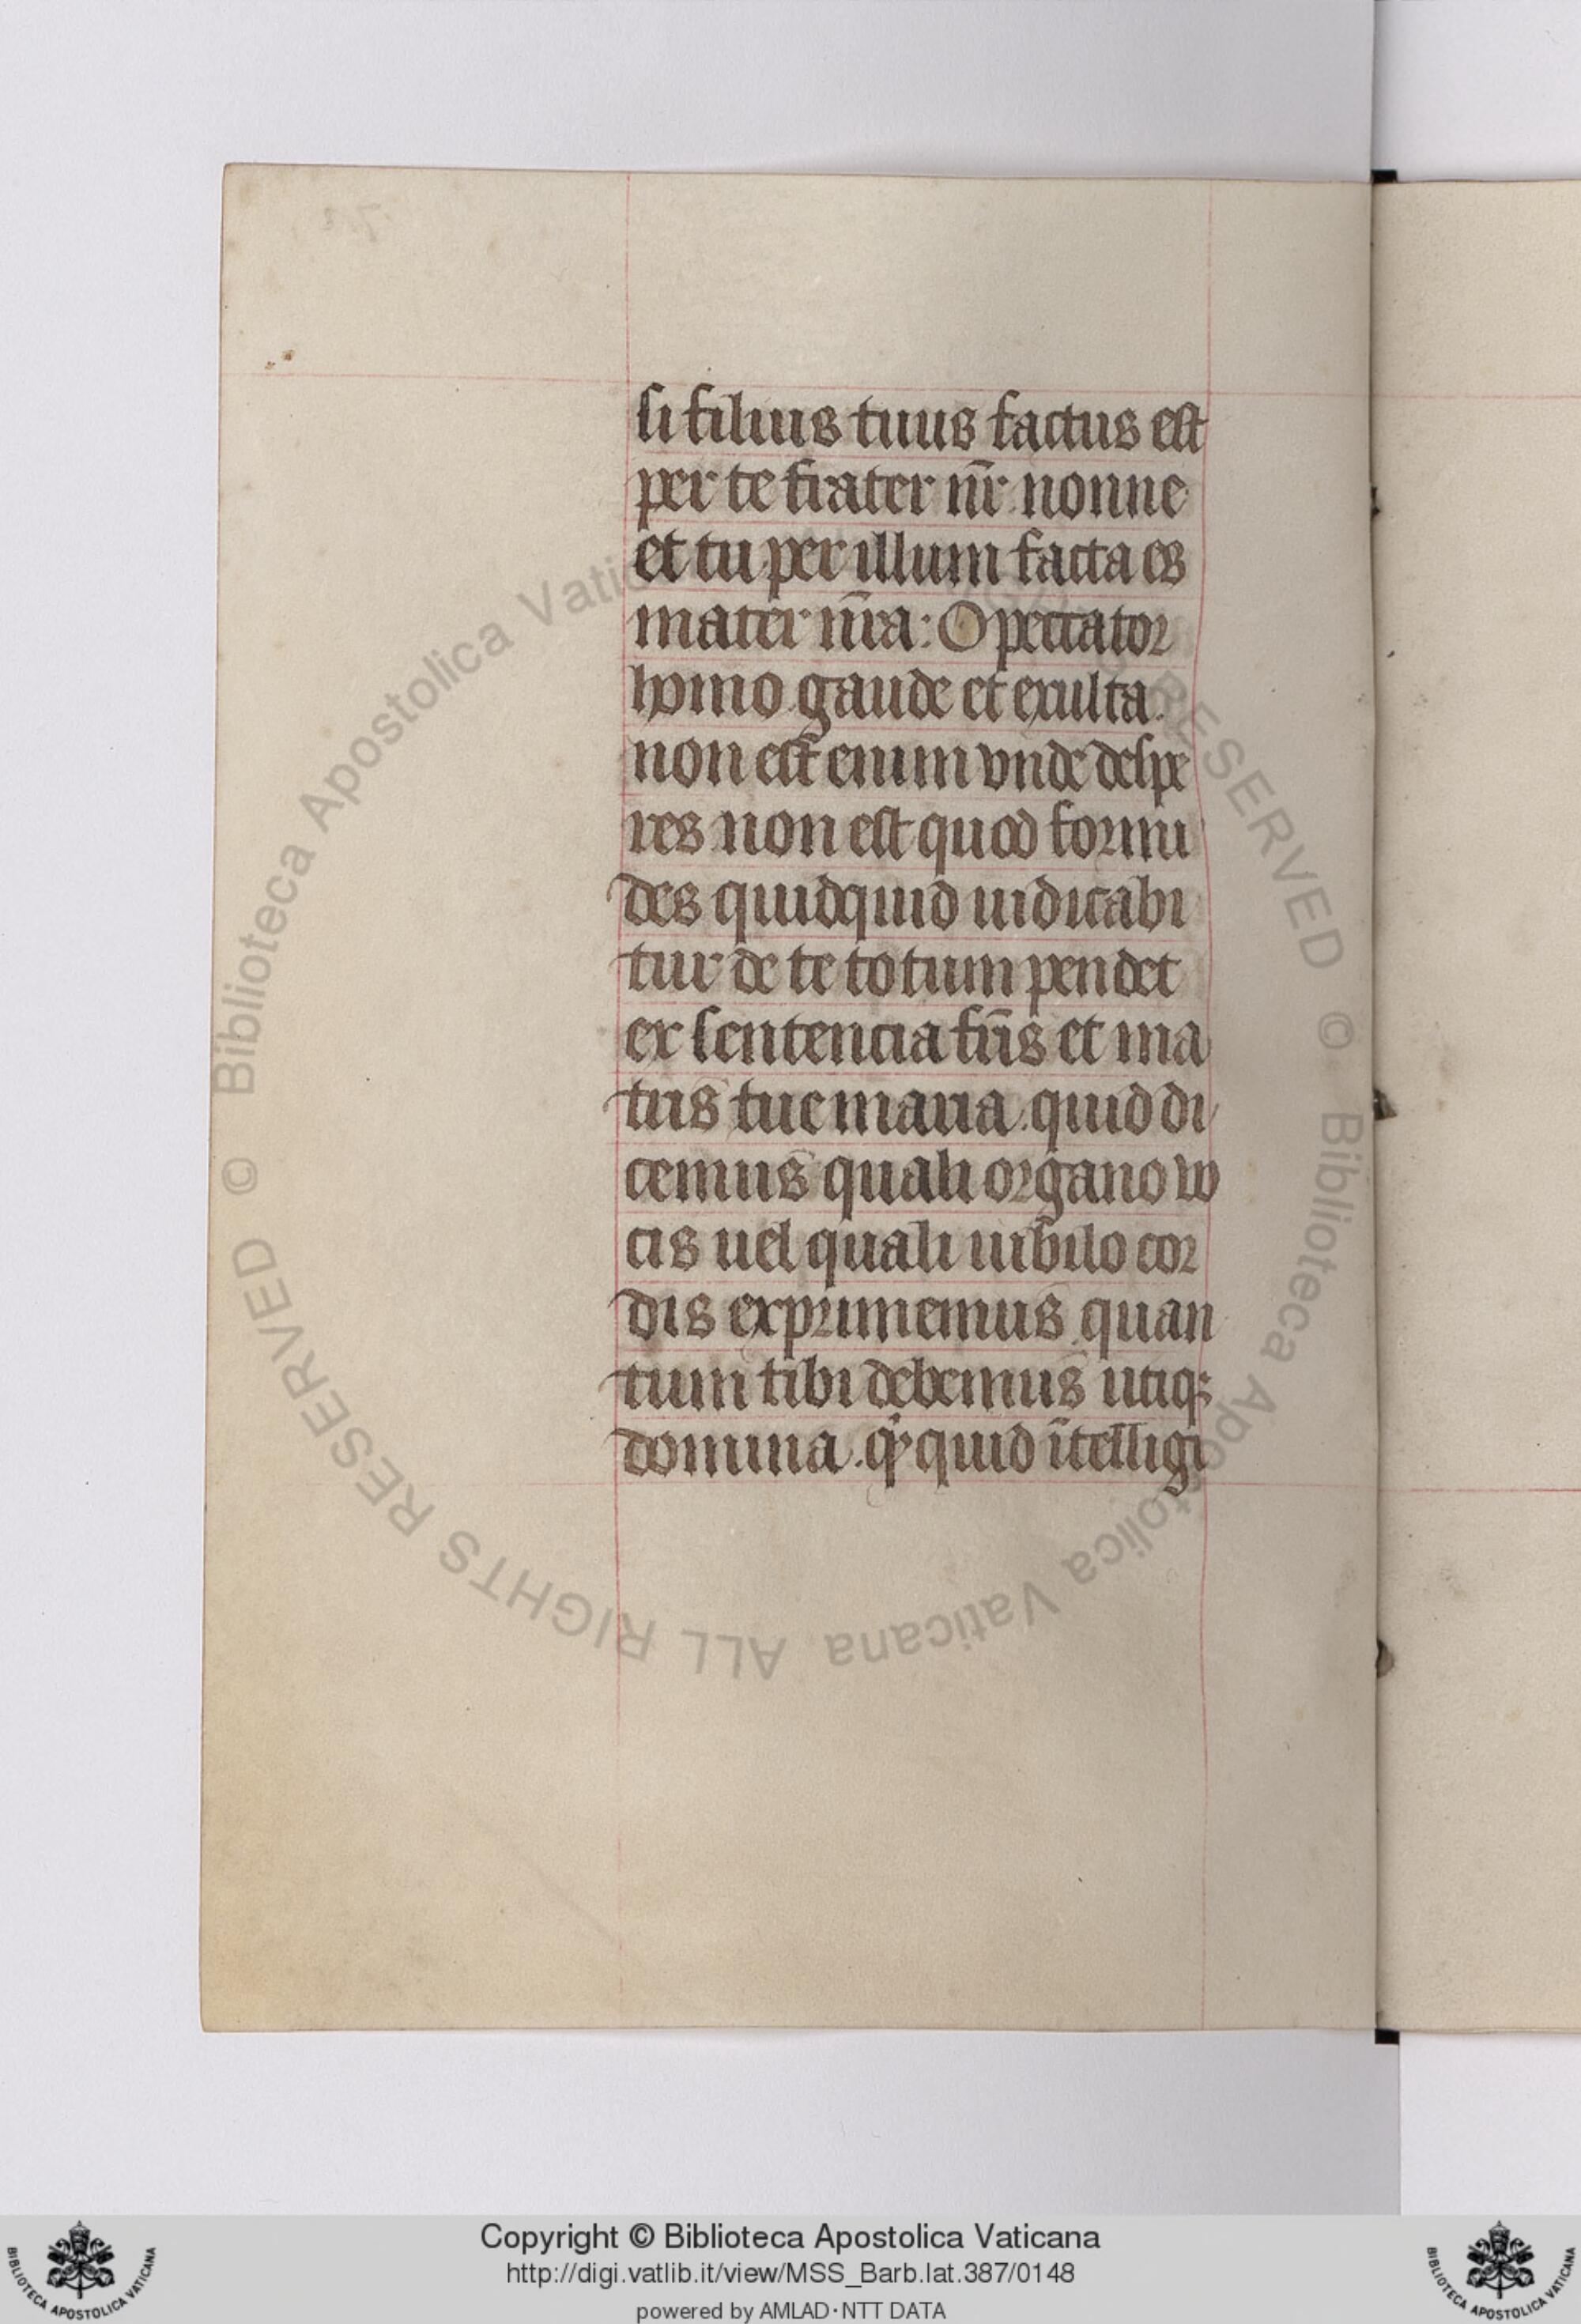 si filius tuus factus est
per te frater nr̄ nonne
et tu per illum facta es
mater nr̄a: O peccator
homo gaude et exulta.
non est enim vnde despe
res non est quod formi
des quidquid iudicabi
tur de te totum pendet
ex sentencia fr̄is et ma
tris tue maria. quid di
cemus quali organo vo
cis uel quali iubilo cor
dis exprimemus quan
tum tibi debemus utiqꝫ
domina. qꝫ quid ītelligi
© Biblioteca Apostolica Vaticana ALL RIGHTS RESERVED © Biblioteca Apostolica Vaticana ALL RIGHTS RESERVED
Copyright © Biblioteca Apostolica Vaticana
http://digi.vatlib.it/view/MSS_Barb.lat.387/0148
powered by AMLAD·NTT DATA
BIBLIOTECA APOSTOLICA VATICANA
BIBLIOTECA APOSTOLICA VATICANA